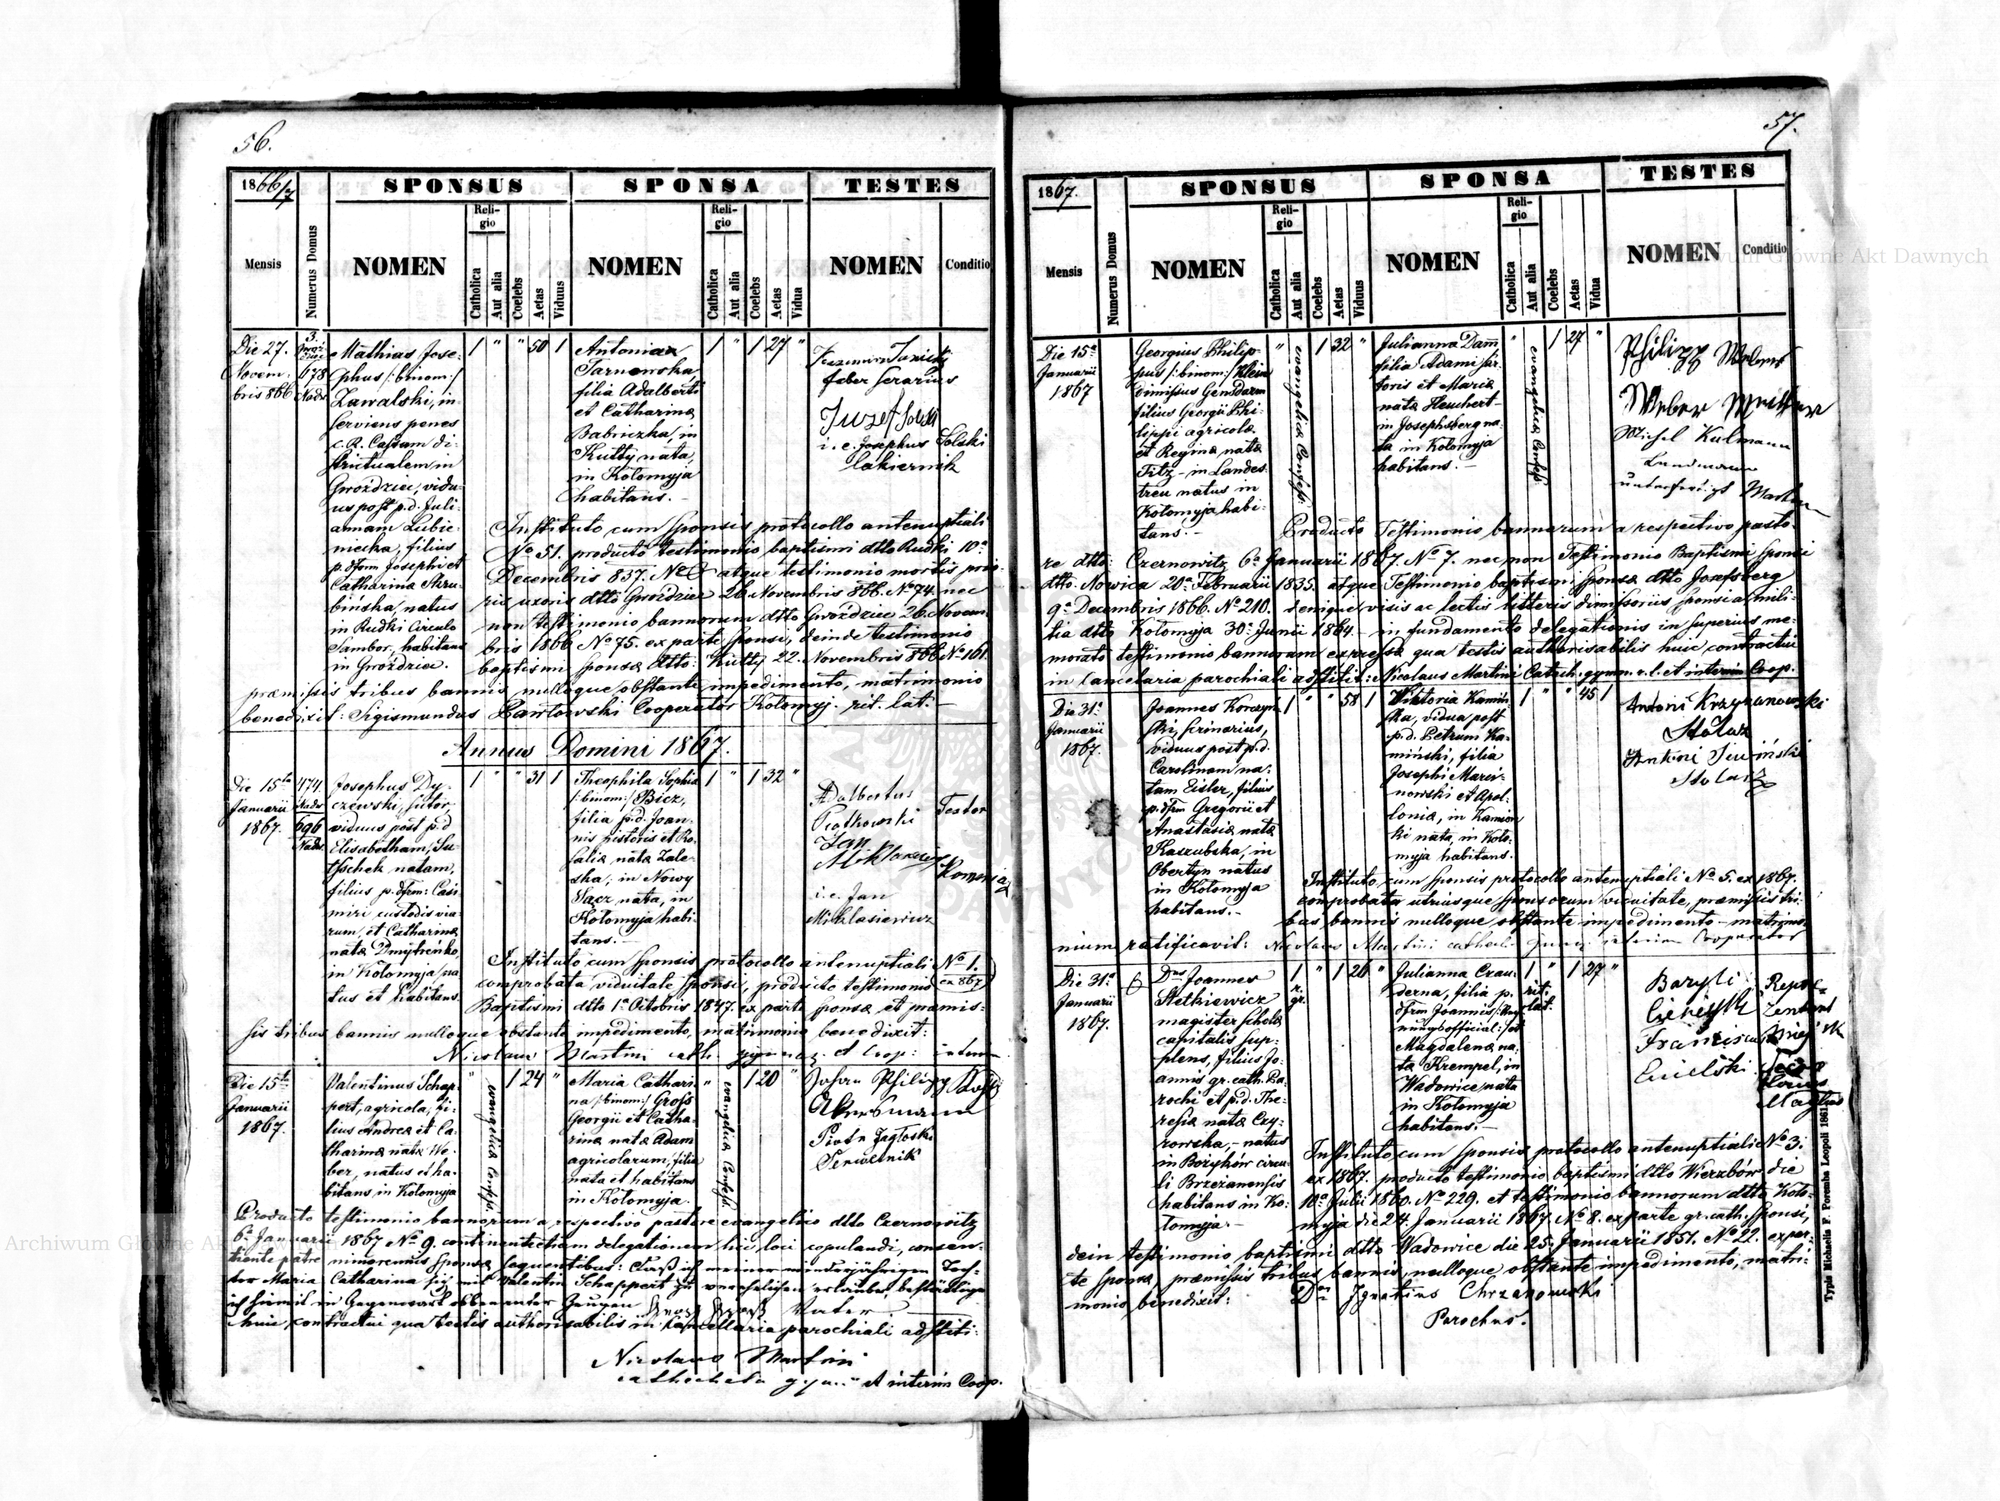 56.
1866/7
SPONSUS
SPONSA
TESTES
Mensis
Numerus Domus
NOMEN
Religio
Catholica
Aut alia
Coelebs
Aetas
Viduus
NOMEN
Religio
Catholica
Aut alia
Coelebs
Aetas
Vidua
NOMEN
Conditio
Die 27.
Novem-
bris 866
3.
678
Mathias Jose-
phus /:binom:/
Zawalski, in-
serviens penes
c. R. Cassam di-
strictualem in
Gwozdziec, vidu-
us post p.d. Juli-
annam Lubie-
niecka, filius
p. dfem Josephi et
Catharina Skru-
binska, natus
in Rudki Circulo
Sambor, habitans
in Gwoździec.
1 " " 50 1
Antonia
Tarnowska
filia Adalberti
et Catharina
Babiczka, in
Kutty nata,
in Kolomyja
habitans. -
1 " 1 27 "
faber serarius
Juzef Solski
i. e. Josephus Solski
Lakiernik
Instituto cum sponsis protocollo antenuptiali
No 51. producto testimonio baptismi dtto Rudki 10a
Decembris 837. No atque testimonio mortis prio-
ris uxoris dtto Gwozdziec 26 Novembris 866. No 74. nec
non testimonio bannorum dtto Gwoździec 26. Novem-
bris 1866 No 75. ex parte sponsi, deinde testimonio
baptismi sponsa dtto: Kutty 22. Novembris 866 No 161.
præmissis tribus bannis nulloque obstante impedimento, matrimonio
benedixit: Sigismundus Pawlowski Cooperator Kolomyj. rit. lat. -
Annus Domini 1867.
Die 15ta
Januarii
1867.
474.
696
Josephus Dy-
czewski, sutor,
viduus post p.d.
Elisabetham, Su-
tschek natam,
filius p. dfem: Casi-
miri custodis via-
rum, et Catharina
nata Dmytrenko,
in Kolomyja na-
tus et habitans.
1 " " 31 1
Theophila Sophia
/:binom:/ Bicz,
filia p.d. Joan-
nis pistoris et Ro-
salia nata Zale-
ska, in Nowy
Sacz nata, in
Kolomyja habi-
tans. -
1 " 1 32 "
Adalbertus
Piatkowski
Jan
Miklasiewicz
i. e. Jan
Miklasiewicz
Instituto cum sponsis protocollo antenuptiali No 1.
comprobata viduitate sponsi, producto testimonio ex 867
Baptismi dtto 1a Octobris 1847. ex parte sponsa et præmis-
sis tribus bannis nulloque obstante impedimento, matrimonio benedixit:
Nicolaus Martini cath. gymnas. et Coop: interim
Die 15ta
Januarii
1867.
Valentinus Schap-
pert, agricola, fi-
lius Andrea et Ca-
tharina nata We-
ber, natus et ha-
bitans in Kolomyja
"
evangelica Confess.
1 24 "
Maria Cathari-
na /:binom:/ Gross
Georgii et Catha-
rina nata Adam
agricolarum filia
nata et habitans
in Kolomyja.
"
evangelica Confess.
1 20 "
Johan Philipp
Akersmann
Piotr
Producto testimonio bannorum a respectivo pastore evangelico dtto Czernowitz
6a Januarii 1867 No 9. continente etiam delegationem hic loci copulandi, consen-
tiente patre minorennis sponsa sequentibus: Dass ich meiner minderjährigen Toch-
ter Maria Catharina sich mit Valentin Schappert zu verehelichen erlaube, bestättige
ich hiemit in Gegenwart obbenannter Zeugen Vater
huic contractui qua testis authorisabilis in Cancellaria parochiali adstiti:
Nicolaus Martini
catecheta gym. et interim Coop.
57.
1867.
SPONSUS
SPONSA
TESTES
Mensis
Numerus Domus
NOMEN
Religio
Catholica
Aut alia
Coelebs
Aetas
Viduus
NOMEN
Religio
Catholica
Aut alia
Coelebs
Aetas
Vidua
NOMEN
Conditio
Die 15a
Januarii
1867
Georgius Philip-
pus /:binom:/ Klein
dimissus Gensdarm
filius Georgii Phi-
lippi agricola
et Regina nata
Titz - in Landes-
treu natus in
Kolomyja habi-
tans. -
"
evangelica Confess:
1 32 "
Julianna Dam
filia Adami sar-
toris et Maria
nata Heuchert -
in Josephsberg na-
ta in Kolomyja
habitans. -
"
evangelica Confess:
1 27 "
Philipp Weber
Weber Meister
Michel Kulmann
Landmann
unterfertigt Martin
Producto Testimonio bannorum a respectivo pasto-
re dtto: Czernowitz 6a Januarii 1867. No 7. nec non Testimonio Baptismi Sponsi
dtto: Nowica 20a Februarii 1835. atque Testimonio baptismi Sponsa dtto Josefsberg
9a Decembris 1866. No 210. denique visis ac lectis litteris dimissoriis sponsi a mili-
tia dtto Kolomyja 30a Junii 1864. - in fundamento delegationis in superius me-
morato testimonio bannorum expressa qua testis authorisabilis huic contractui
in Cancelaria parochiali adstiti: Nicolaus Martini Catech. gymn. r.l. et interim Coop.
Die 31a
Januarii
1867.
Joannes Korczyn-
ski, scrinarius,
viduus post p.d.
Carolinam na-
tam Eisler, filius
p. dfem Gregorii et
Anastasia nata
Kaszubska, in
Obertyn natus
in Kolomyja
habitans. -
1 " " 58 1
Viktoria Kamiń-
ska, vidua post
p.d. Petrum Ka-
miński, filia
Josephi Marci-
nowski et Apol-
lonia, in Kamion-
ki nata, in Kolo-
myja habitans. -
1 " " 45 1
Antoni Krzyżanowski
Stolarz
Antoni
Stolarz
Instituto cum sponsis protocollo antenuptiali No 5. ex 1867.
comprobata utriusque sponsorum viduitate, præmissis tri-
bus bannis nulloque obstante impedimento - matrimo-
nium ratificavit: Nicolaus Martini catech. gymn. interim Cooperator
Die 31a
Januarii
1867.
Dnus Joannes
Stetkiewicz
magister schola
capitalis sup-
plens, filius Jo-
annis gr. cath. Pa-
rochi et p.d. The-
resia nata Czy-
rowska, - natus
in Bożyków circu-
li Brzezanensis
habitans in Ko-
lomyja. -
1
r.
gr.
" 1 26 "
Julianna Czau-
derna, filia p.
dfem Joannis
et
Magdalena na-
ta Krempel, in
Wadowice nata
in Kolomyja
habitans. -
1
rit.
lat.
" 1 27 "
Franciscus
Instituto cum sponsis protocollo antenuptiali No 3.
ex 1867. producto testimonio baptismi dtto Wierzbów die
10a Julii 1860. No 229. et testimonio bannorum dtto Kolo-
myja die 24. Januarii 1867. No 8. ex parte gr. cath. sponsi,
dein testimonio baptismi dtto Wadowice die 25. Januarii 1851. No 22. ex par-
te sponsa, præmissis tribus bannis, nulloque obstante impedimento, matri-
monio benedixit: Dn Ignatius Chrzanowski
Parochus.
Typis Michaelis F. Poremba Leopoli 1861
Archiwum Główne Akt Dawnych